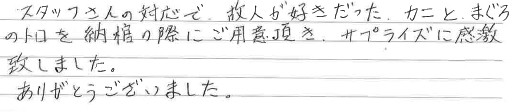 スタッフさんの対応で、故人が好きだった、カニと、まぐろ
のトロを納棺の際にご用意頂き、サプライズに感激
致しました。
ありがとうございました。